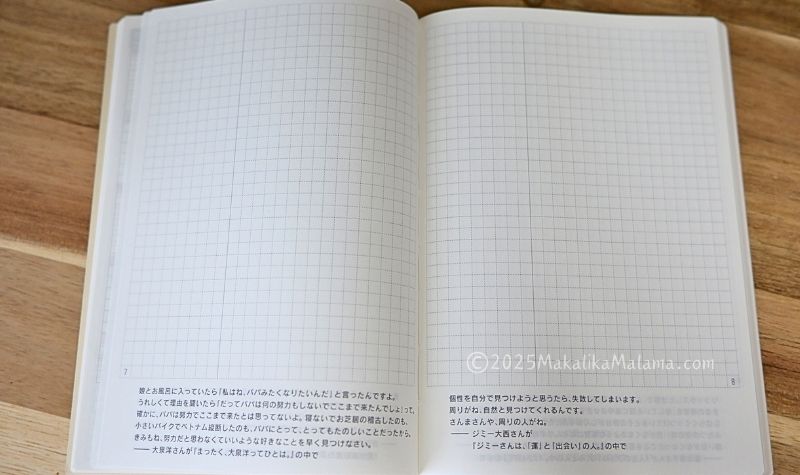 7
娘とお風呂に入っていたら「私はね、パパみたくなりたいんだ」と言ったんですよ。
うれしくて理由を聞いたら「だってパパは何の努力もしないでここまで来たんでしょ」って、
確かに、パパは努力でここまで来たとは思ってないよ。寝ないでお芝居の稽古したのも、
小さいバイクでベトナム縦断したのも、パパにとって、とってもたのしいことだったから。
きみもね、努力だと思わなくていいような好きなことを早く見つけなさい。
―― 大泉洋さんが『まったく、大泉洋ってひとは。』の中で
8
個性を自分で見つけようと思うたら、失敗してしまいます。
周りがね、自然と見つけてくれるんです。
さんまさんや、周りの人がね。
―― ジミー大西さんが
『ジミーさんは、「運」と「出会い」の人。』の中で
©2025MakalikaMalama.com